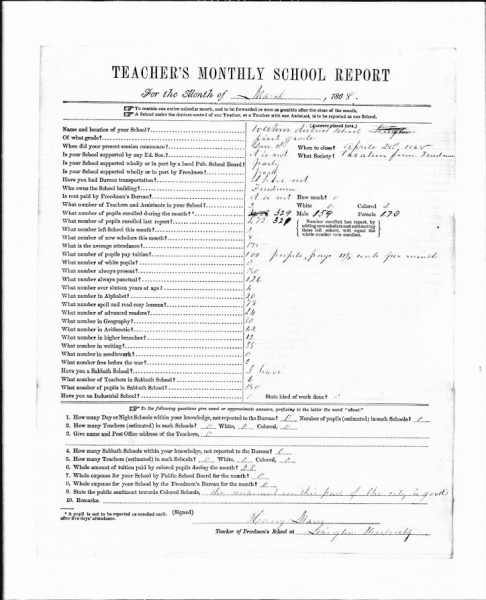 TEACHER'S MONTHLY SCHOOL REPORT
For the Month of March, 1868.
To contain one entire calendar month, and to be forwarded as soon as possible after the close of the month.
A School under the distinct control of one Teacher, or a Teacher with one Assistant, is to be reported as one School.
(Answers placed here.)
Name and location of your School? Western district School
Of what grade? first grade
When did your present session commence? When to close? April
Is your School supported by any Ed. Soc.? it is not What Society? taxation from Freedmen
Is your School supported wholly or in part by a local Pub. School Board? party
Is your School supported wholly or in part by Freedmen?
Have you had Bureau transportation? I have not
Who owns the School building? Freedmen
Is rent paid by Freedmen's Bureau? it is not How much? 0
What number of Teachers and Assistants in your School? 2 White? 0 Colored? 2
What number of pupils enrolled during the month?* 329 Male 159 Female 170
What number of pupils enrolled last report?
Number enrolled last report, by adding new scholars and subtracting those left school, will equal the whole number now enrolled.
What number left School this month?
What number of new scholars this month?
What is the average attendance?
What number of pupils pay tuition? 100 pupils pays cents per month
What number of white pupils? 0
What number always present?
What number always punctual? 126
What number over sixteen years of age?
What number in Alphabet? 20
What number spell and read easy lessons?
What number of advanced readers? 24
What number in Geography?
What number in Arithmetic? 62
What number in higher branches? 12
What number in writing?
What number in needlework? 0
What number free before the war?
Have you a Sabbath School? I have
What number of Teachers in Sabbath School? 6
What number of pupils in Sabbath School?
Have you an Industrial School? 0 State kind of work done? 0
To the following questions give exact or approximate answers, prefixing to the latter the word "about."
1. How many Day or Night Schools within your knowledge, not reported to the Bureau? 0 Number of pupils (estimated) in such Schools? 0
2. How many Teachers (estimated) in such Schools? 0 White, 0 Colored, 0
3. Give name and Post Office address of the Teachers, 0
4. How many Sabbath Schools within your knowledge, not reported to the Bureau? 0
5. How many Teachers (estimated) in such Schools? 0 White, 0 Colored, 0
6. Whole amount of tuition paid by colored pupils during the month? 25
7. Whole expense for your School by Public School Board for the month? 0
8. Whole expense for your School by the Freedmen's Bureau for the month? 0
9. State the public sentiment towards Colored Schools, the sentiment in this part of the city is good
10. Remarks.
* A pupil is not to be reported as enrolled until after five days' attendance.
(Signed)
Teacher of Freedmen's School at Lexington Kentucky